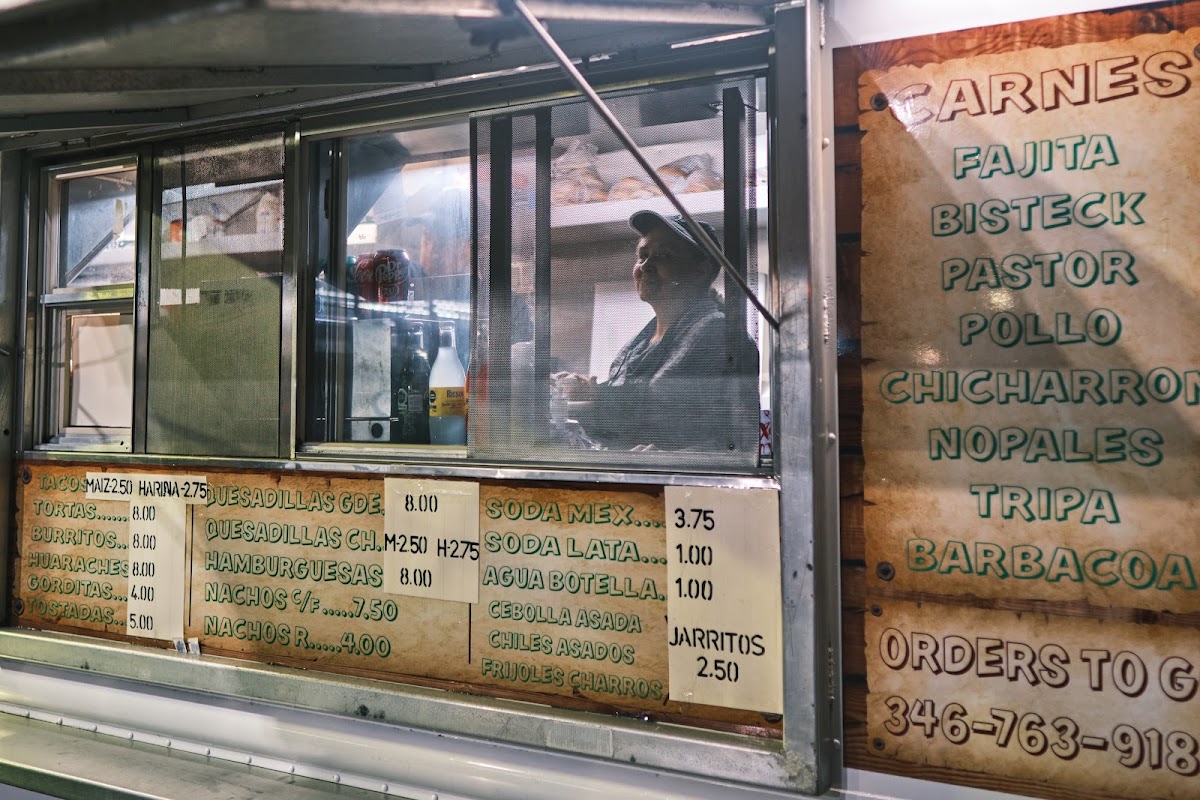 TACOS MAIZ-2.50 HARINA-2.75
TORTAS...... 8.00
BURRITOS... 8.00
HUARACHES 8.00
GORDITAS... 4.00
TOSTADAS... 5.00
QUESADILLAS GDE. 8.00
QUESADILLAS CH. M-2.50 H-2.75
HAMBURGUESAS 8.00
NACHOS C/F .....7.50
NACHOS R.....4.00
SODA MEX.... 3.75
SODA LATA... 1.00
AGUA BOTELLA.. 1.00
CEBOLLA ASADA
CHILES ASADOS
FRIJOLES CHARROS
JARRITOS
2.50
CARNES
FAJITA
BISTECK
PASTOR
POLLO
CHICHARRON
NOPALES
TRIPA
BARBACOA
ORDERS TO G
346-763-918